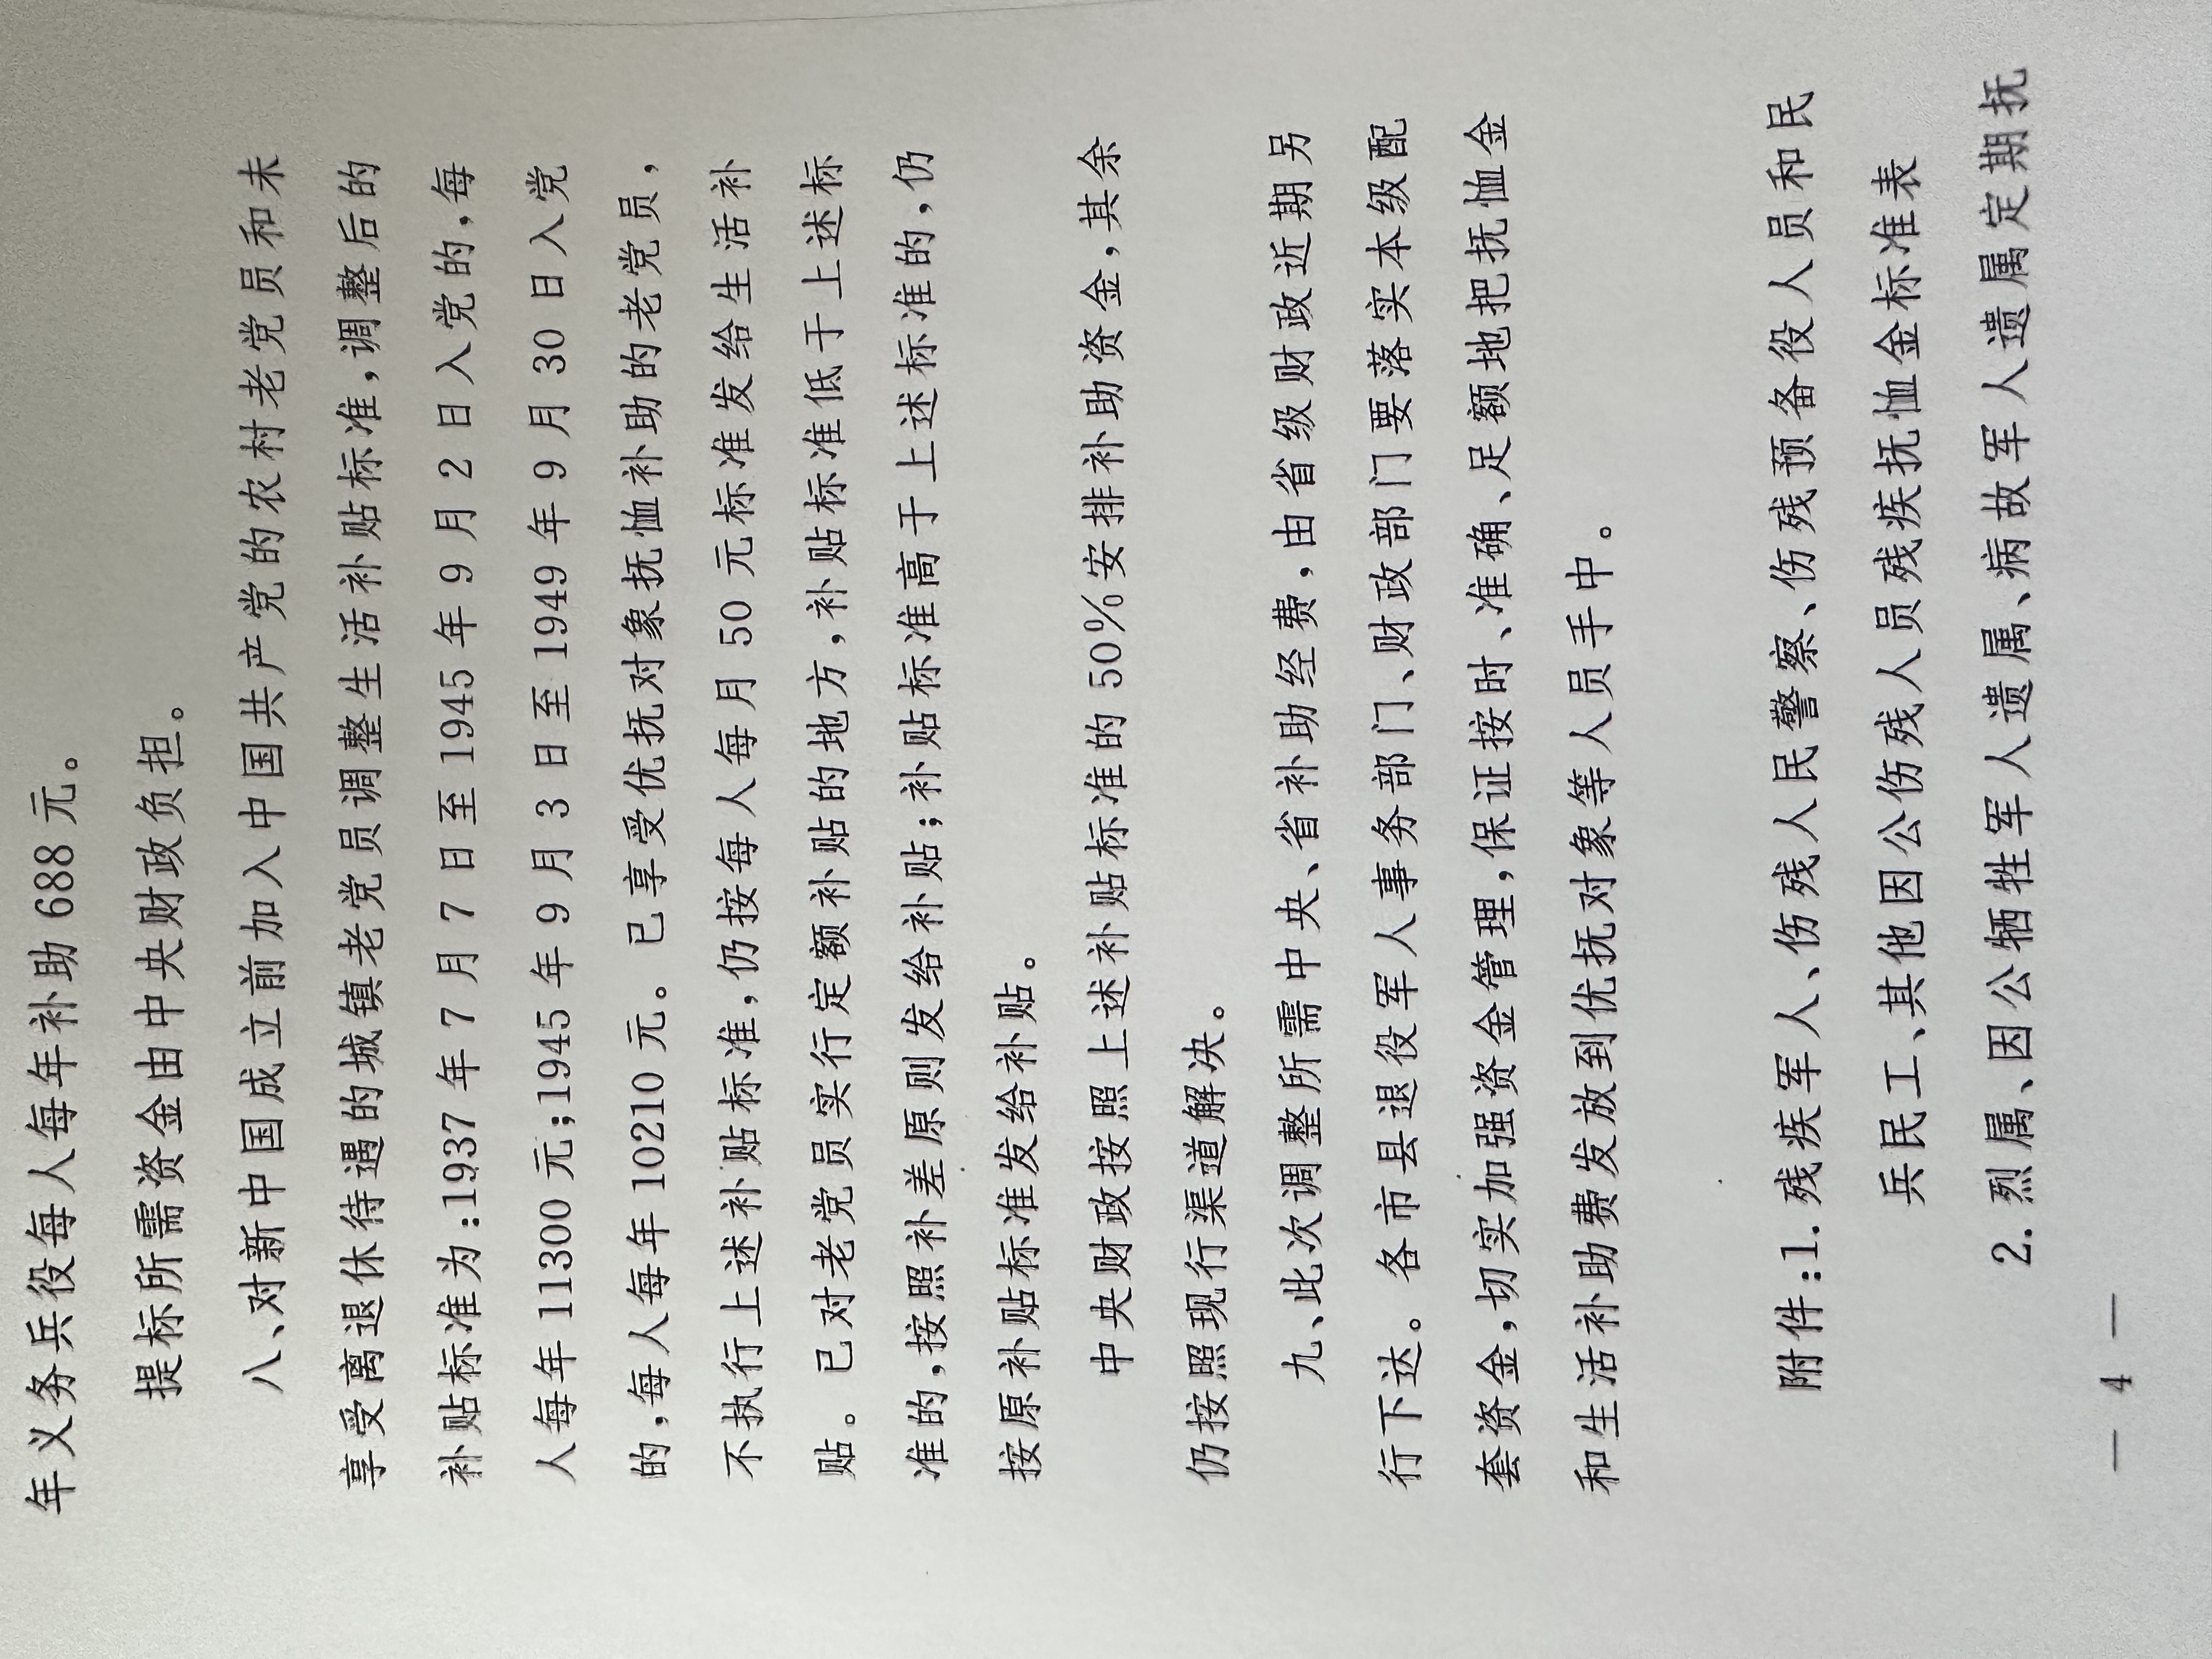 年义务兵役每人每年补助 688 元。
提标所需资金由中央财政负担。
八、对新中国成立前加入中国共产党的农村老党员和未
享受离退休待遇的城镇老党员调整生活补贴标准,调整后的
补贴标准为:1937 年 7 月 7 日至 1945 年 9 月 2 日入党的,每
人每年 11300 元;1945 年 9 月 3 日至 1949 年 9 月 30 日入党
的,每人每年 10210 元。已享受优抚对象抚恤补助的老党员,
不执行上述补贴标准,仍按每人每月 50 元标准发给生活补
贴。已对老党员实行定额补贴的地方,补贴标准低于上述标
准的,按照补差原则发给补贴;补贴标准高于上述标准的,仍
按原补贴标准发给补贴。
中央财政按照上述补贴标准的 50%安排补助资金,其余
仍按照现行渠道解决。
九、此次调整所需中央、省补助经费,由省级财政近期另
行下达。各市县退役军人事务部门、财政部门要落实本级配
套资金,切实加强资金管理,保证按时、准确、足额地把抚恤金
和生活补助费发放到优抚对象等人员手中。
附件:1. 残疾军人、伤残人民警察、伤残预备役人员和民
兵民工、其他因公伤残人员残疾抚恤金标准表
2. 烈属、因公牺牲军人遗属、病故军人遗属定期抚
— 4 —